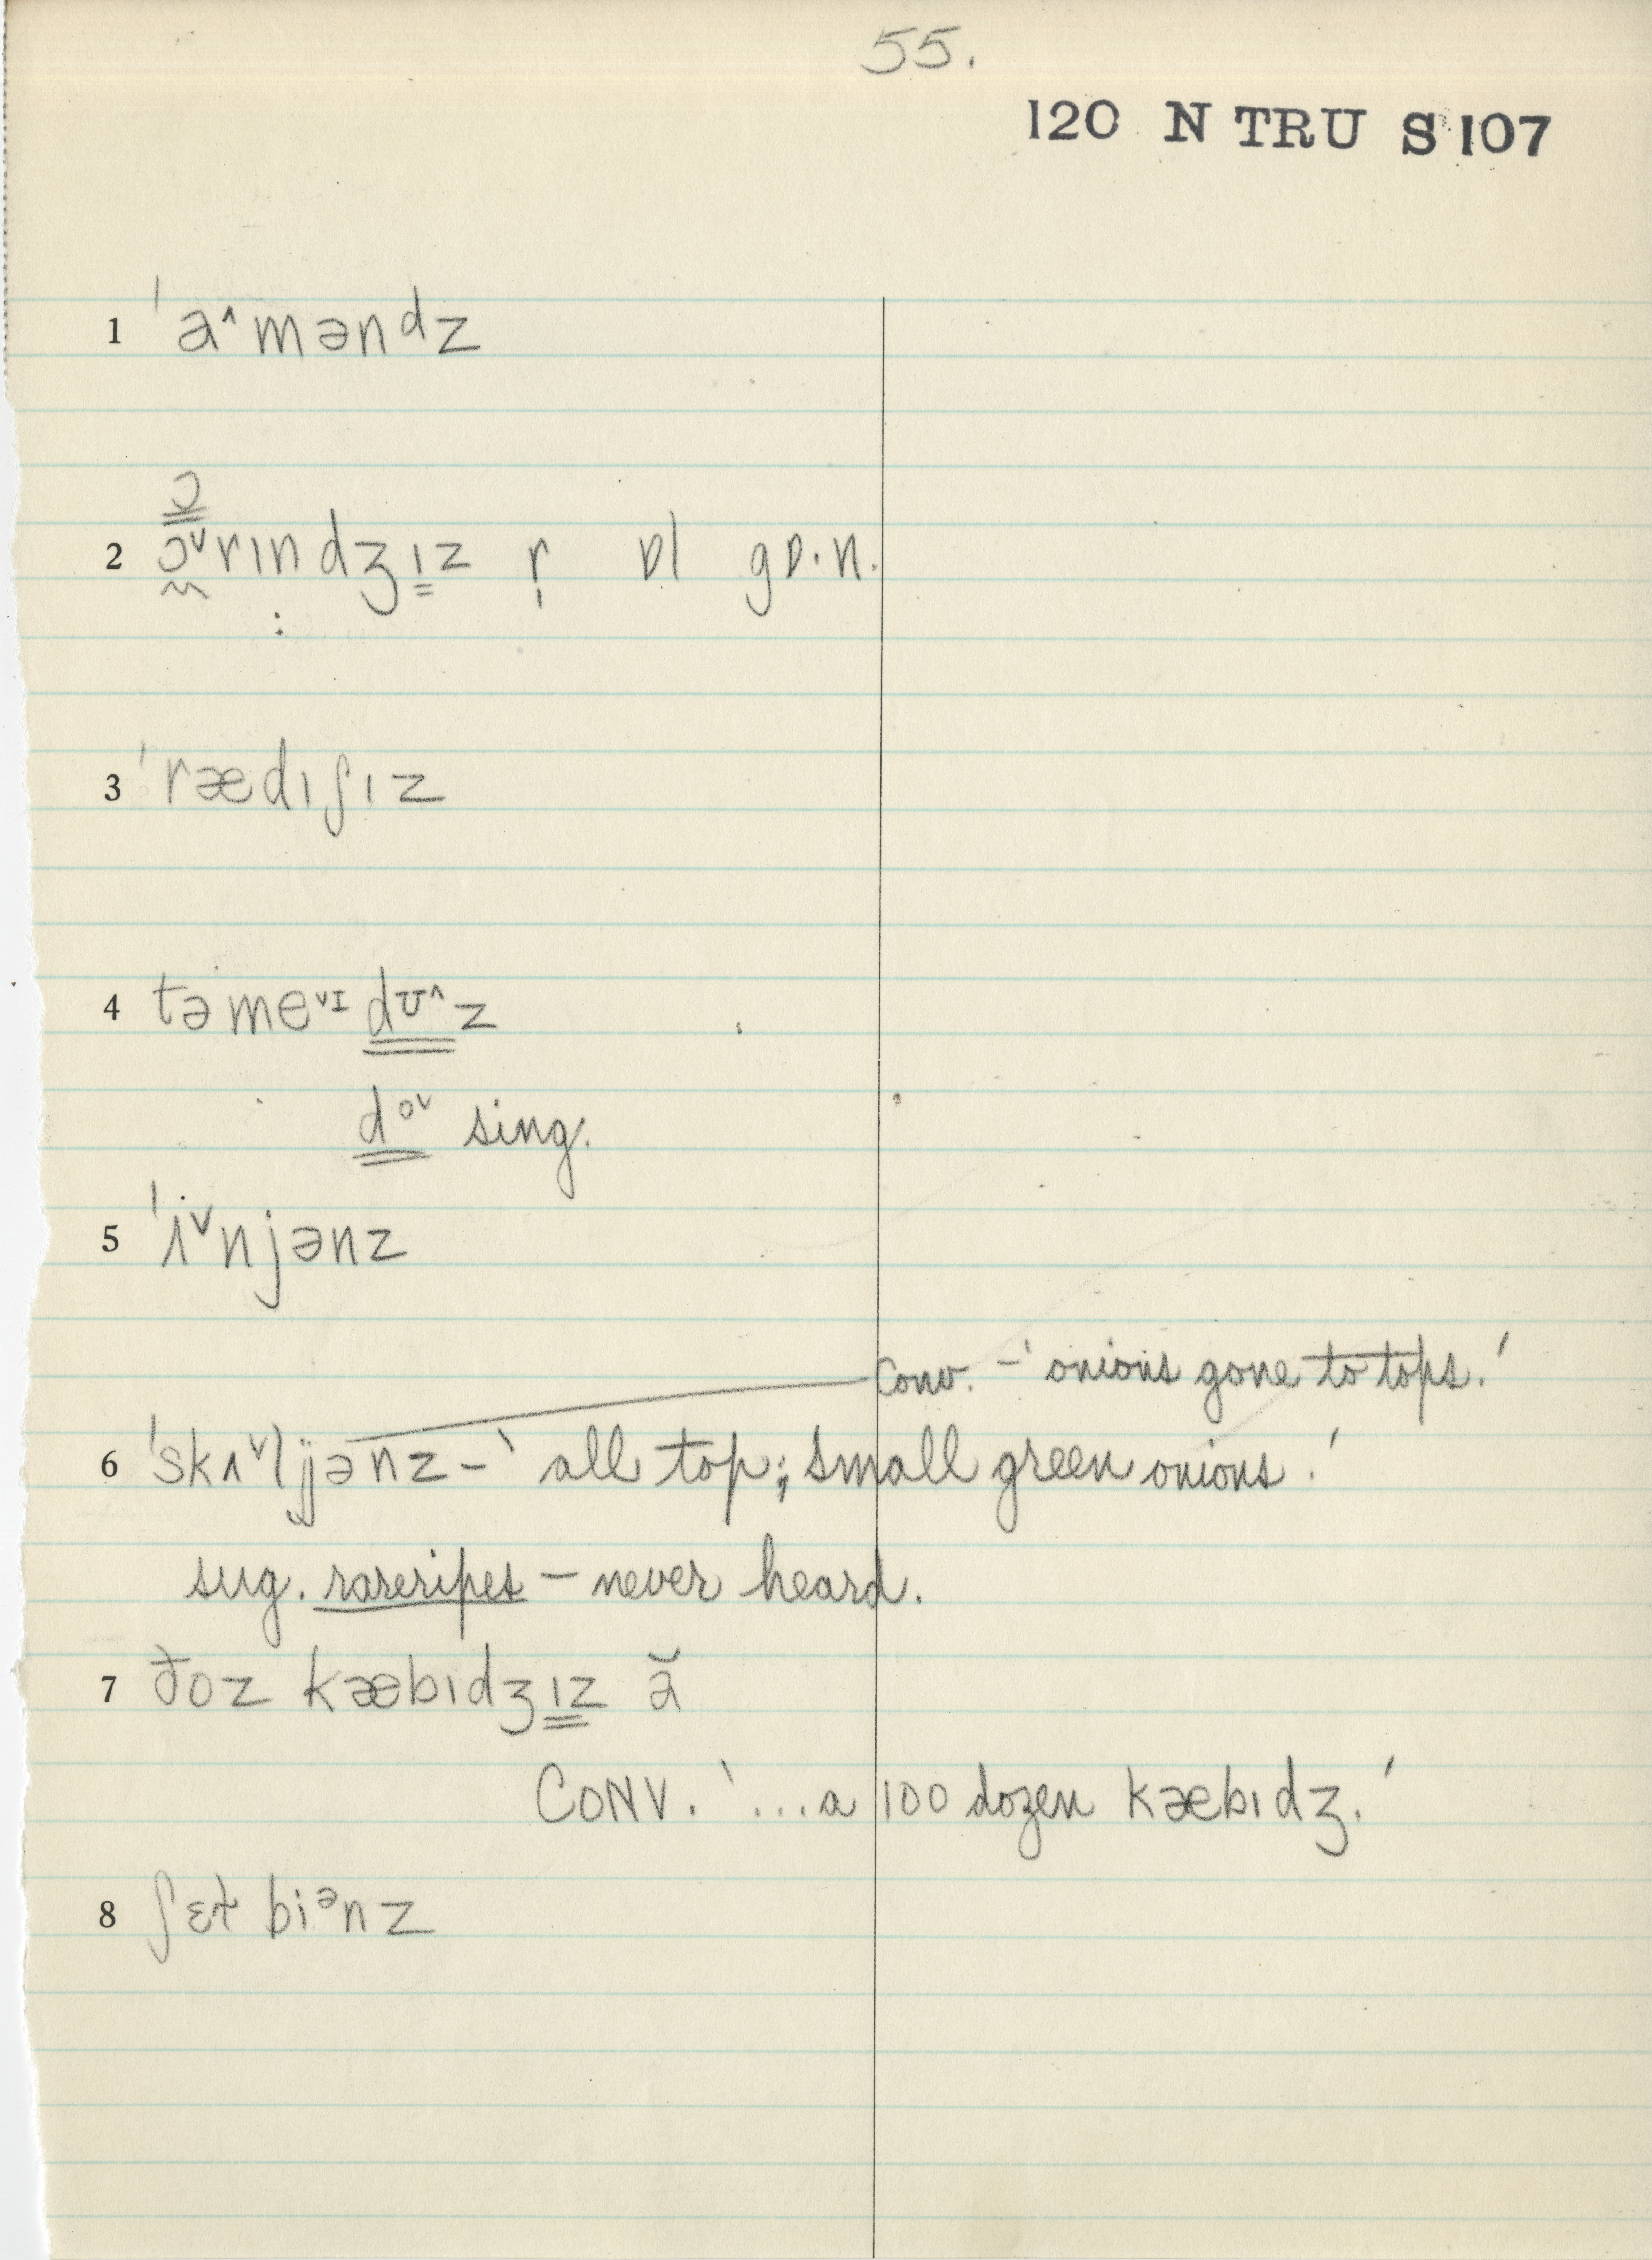 55.
120 N TRU S 107
1 ˈa˄mənᵈz
ɔ
2 ɔ˅rɪndʒɪz r̩ ɒl gɒ·n.
3 ˈrædɪʃɪz
4 təme˅ᴵdᶷ˄z
dᵒ˅ sing.
5 ˈʌ˅njənz
Conv. – 'onions gone to tops.'
6 ˈskʌ˅ljənz – 'all top; small green onions.'
sug. rareripes – never heard.
7 ðoz kæbɪdʒɪz ə̆
CONV. '...a 100 dozen kæbɪdʒ.'
8 ʃɛɫ biᵊnz